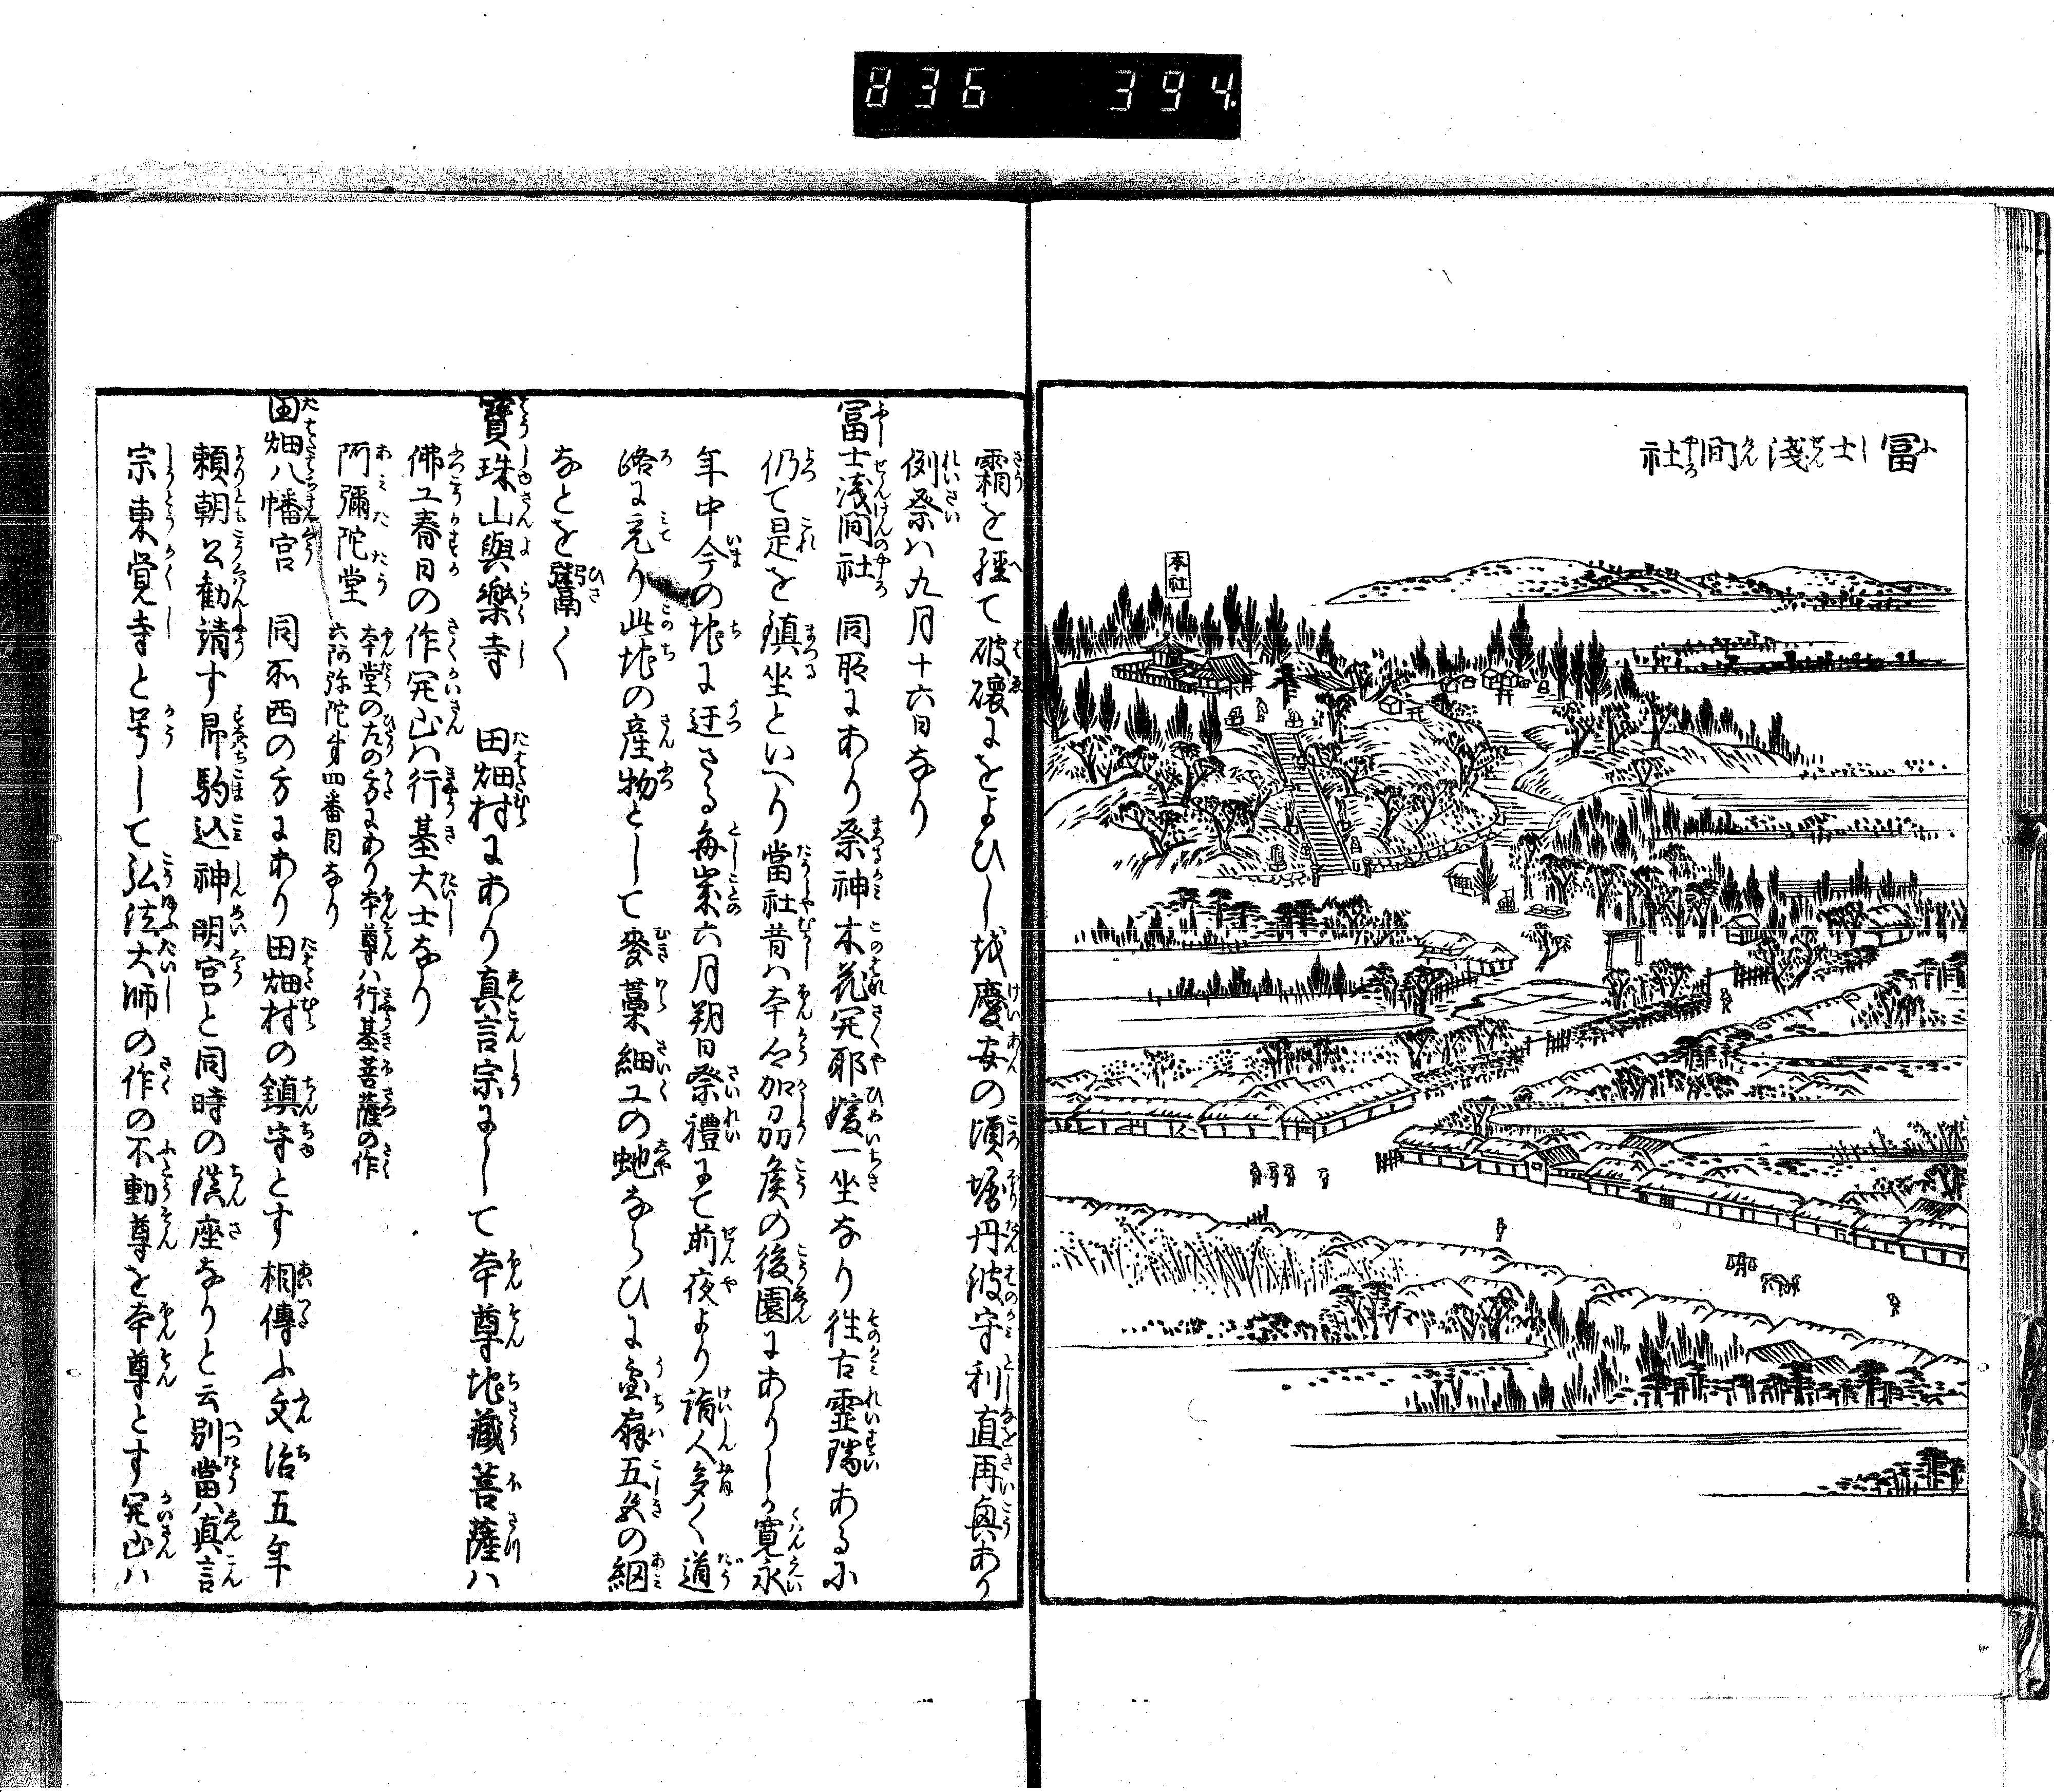 836 394
冨士淺間社
本社
霜を經て破壊におよひしを慶安の頃堀丹波守利直再興あり
例祭ハ九月十六日なり
冨士淺間社 同所にあり祭神木花開耶媛一坐なり往古靈瑞あるに
仍て是を鎮坐といへり當社昔ハ本郷加州侯の後園にありしか寛永
年中今の地に迂さる毎歳六月朔日祭禮にて前夜より詣人多く道
路に充り此地の産物として麥藁細工の蛇ならひに團扇五色の網
なとを鬻く
寶珠山與樂寺 田畑村にあり真言宗にして本尊地藏菩薩ハ
佛工春日の作開山ハ行基大士なり
阿彌陀堂 本堂の左の方にあり本尊ハ行基菩薩の作
六阿弥陀第四番目なり
田畑八幡宮 同所西の方にあり田畑村の鎮守とす相傳ふ文治五年
頼朝公勧請す昴駒込神明宮と同時の鎮座なりと云別當ハ真言
宗東覚寺と号して弘法大師の作の不動尊を本尊とす開山ハ